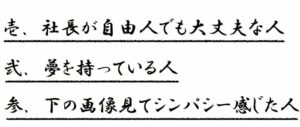 壱、社長が自由人でも大丈夫な人
弐、夢を持っている人
参、下の画像見てシンパシー感じた人